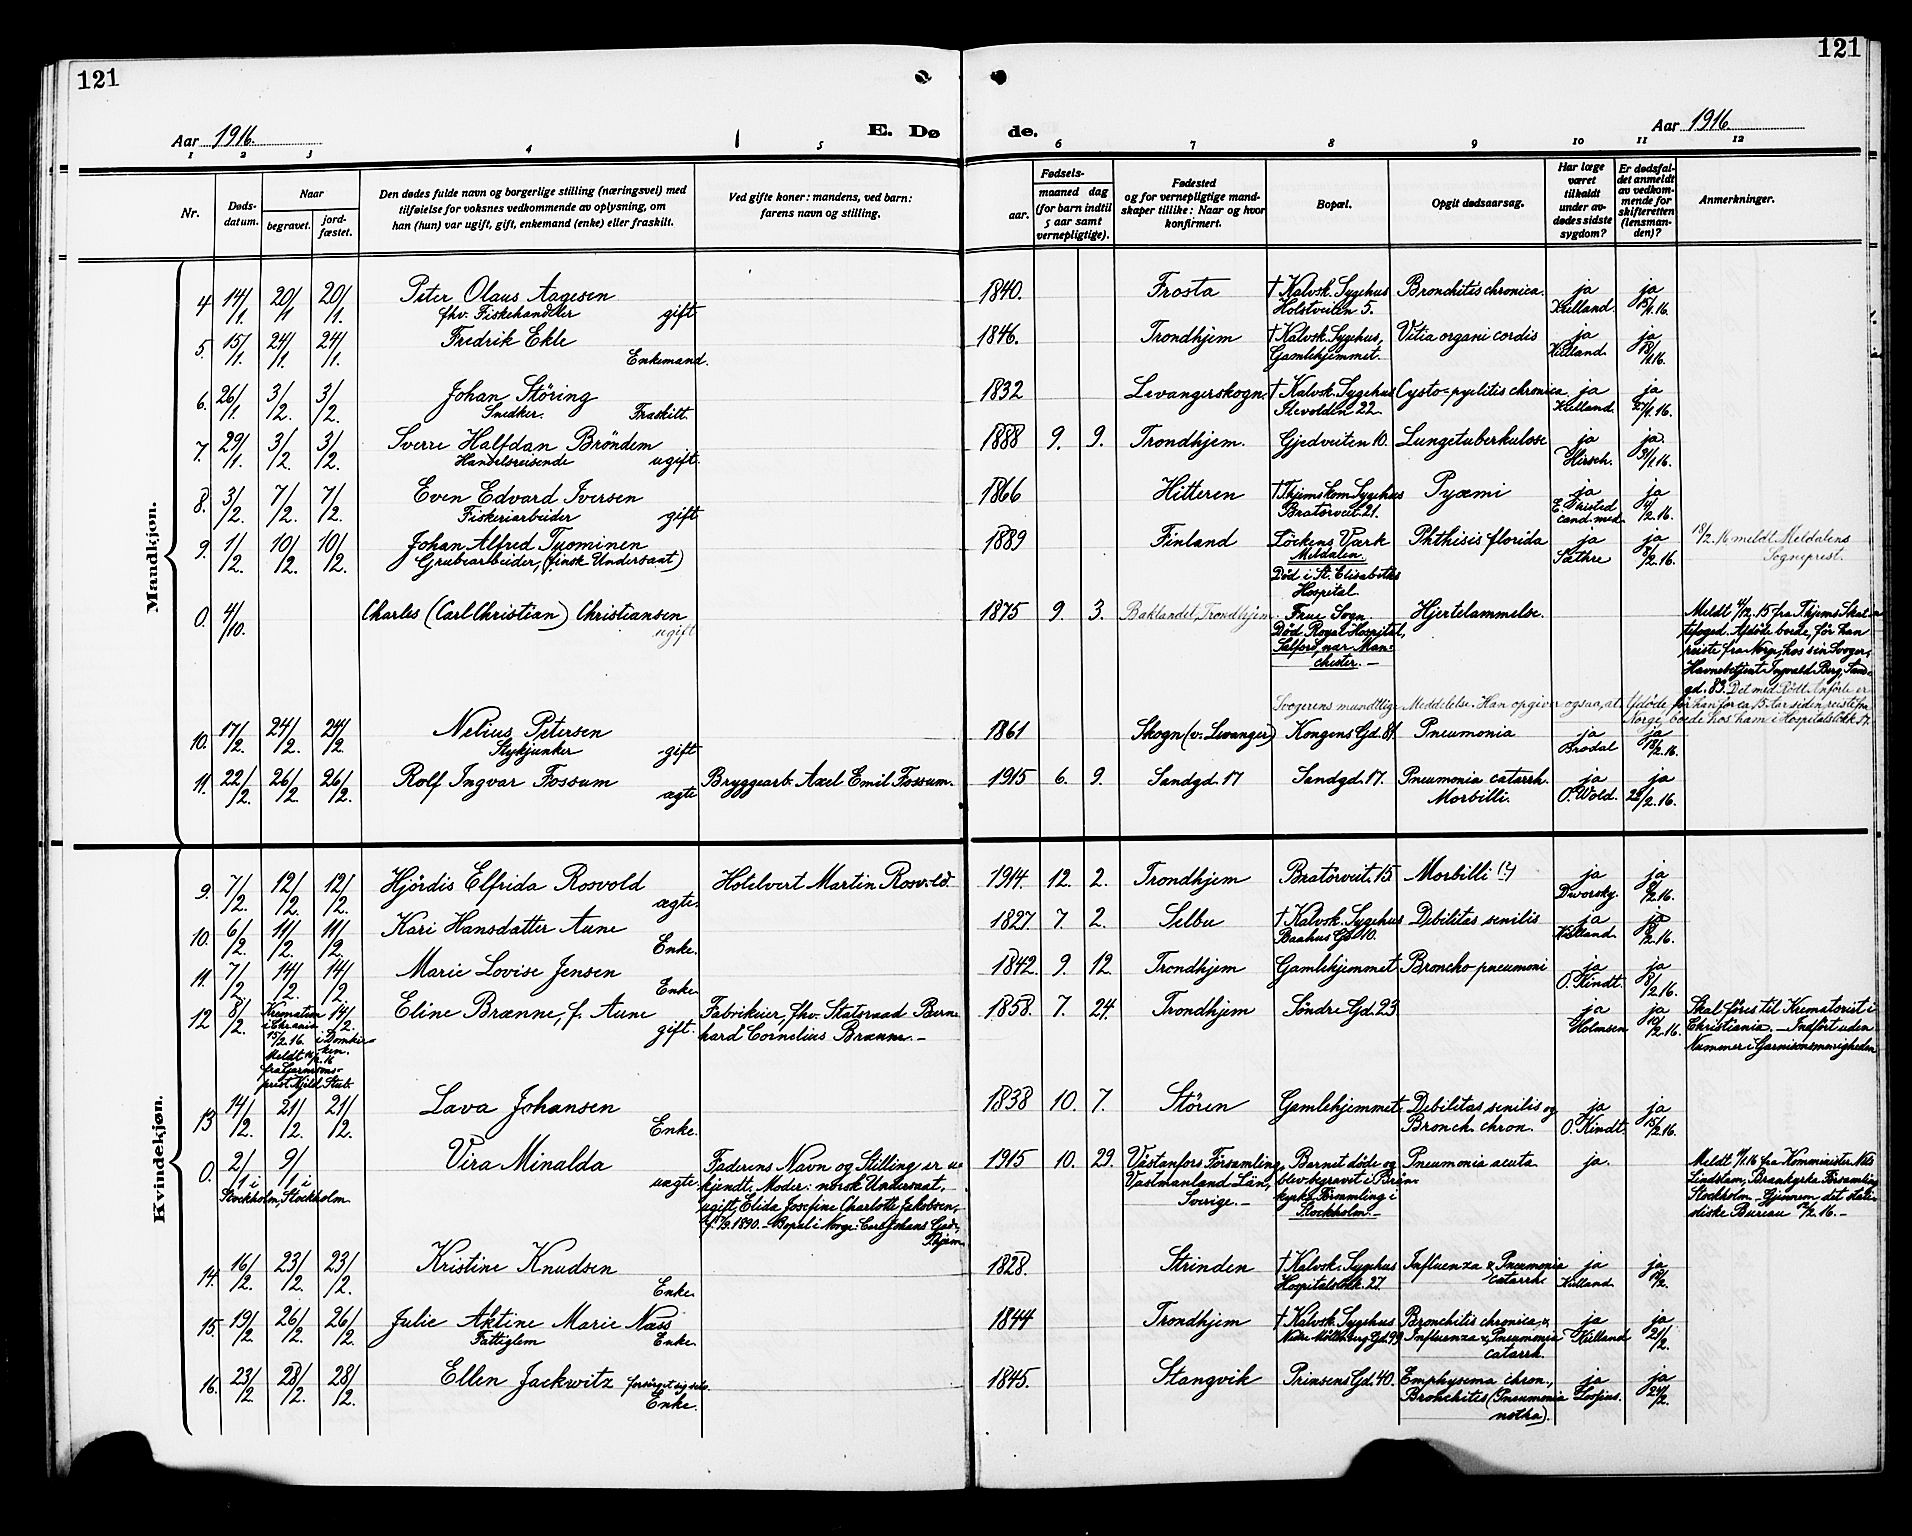 121
121
Aar 1916.
E. Dø
de.
Aar 1916.
1 2 3 4 5 6 7 8 9 10 11 12
Nr.
Døds-
datum.
Naar
begravet.
jord-
fæstet.
Den dødes fulde navn og borgerlige stilling (næringsvei) med
tilføielse for voksnes vedkommende av oplysning, om
han (hun) var ugift, gift, enkemand (enke) eller fraskilt.
Ved gifte koner: mandens, ved barn:
farens navn og stilling.
Fødsels-
aar.
maaned dag
(for barn indtil
5 aar samt
vernepligtige).
Fødested
og for vernepligtige mand-
skaper tillike: Naar og hvor
konfirmert.
Bopæl.
Opgit dødsaarsag.
Har læge
været
tilkaldt
under av-
dødes sidste
sygdom?
Er dødsfal-
det anmeldt
av vedkom-
mende for
skifteretten
(lensman-
den)?
Anmerkninger.
Mandkjøn.
4 14/1. 20/1 20/1. Peter Olaus Aagesen 1840. Frosta † Kalvsk. Sygehus Bronchitis chronica. ja ja
fhv. Fiskehandler gift Holstveiten 5. Kielland. 15/1.16.
5. 15/1. 24/1. 24/1. Fredrik Ekle 1846. Trondhjem † Kalvsk. Sygehus, Vitia organi cordis ja ja
Enkemand. Gamlehjemmet. Kielland. 18/1.16.
6. 26/1. 3/2. 3/2. Johan Störing 1832 Levangerskogn † Kalvsk. Sygehus Cysto-pyelitis chronica ja ja
Snedker. Fraskilt. Ilevolden 22. Kielland. 27/1.16.
7. 29/1. 3/2. 3/2. Sverre Halfdan Bröndem 1888 9. 9. Trondhjem. Gjedveiten 10. Lungetuberkulose ja ja.
Handelsreisende ugift. Hirsch. 31/1.16.
8. 3/2. 7/2. 7/2. Even Edvard Iversen 1866 Hitteren † Thjems Kom. Sygehus Pyæmi ja ja
Fiskeriarbeider gift Bratörveit. 21. cand. med. 4/2.16.
9. 1/2. 10/2. 10/2. Johan Alfred Tuominen 1889 Finland Löckens Værk Phthisis florida ja ja 18/2.16 meldt Meldalens
Grubearbeider, (finsk Undersaat) Meldalen. Sæthre 8/2.16. Sogneprest.
Död i St. Elisabeths
Hospital.
0. 4/10. Charles (Carl Christian) Christiansen 1875 9. 3. Baklandet, Trondhjem. Frue Sogn Hjertelammelse. Meldt 4/12.15 fra Thjems Skat-
ugift Död Royal Hospital, tefoged. Afdöde boede, för han
Salford, nær Man- reiste fra Norge, hos sin Svoger,
chester. — Havnebetjent Ingvald Berg, Sand-
gd. 83. Det med Rött Anförte er
Svogerens mundtlige Meddelelse. Han opgiver ogsaa, at Afdöde, för han for ca. 15 Aar siden reiste fra
Norge, boede hos ham i Hospitalslökk. 17.
10. 17/2. 24/2. 24/2. Nelius Petersen 1861 Skogn (v. Levanger) Kongens Gd. 81. Pneumonia ja ja
Stykjunker gift Brodal 18/2.16.
11. 22/2. 26/2. 26/2. Rolf Ingvar Fossum Bryggearb. Axel Emil Fossum. 1915 6. 9. Sandgd. 17 Sandgd. 17. Pneumonia catarrh. ja ja
ægte Morbilli. O. Wold. 23/2.16.
Kvindekjøn.
9. 7/2. 12/2. 12/2. Hjördis Elfrida Rosvold Hotelvert Martin Rosvold. 1914. 12. 2. Trondhjem Bratörveit. 15 Morbilli (?) ja ja
ægte. Dworsky. 8/2.16.
10. 6/2. 11/2. 11/2. Kari Hansdatter Aune 1827. 7. 2. Selbu † Kalvsk. Sygehus Debilitas senilis ja ja
Enke. Baahus Gd. 10. Kielland. 8/2.16.
11. 7/2. 14/2. 14/2 Marie Lovise Jensen 1842. 9. 12. Trondhjem Gamlehjemmet Broncho-pneumoni ja ja
Enke. O. Kindt. 8/2.16.
12 8/2. Kremation 14/2. Eline Brænne, f. Aune Fabrikeier, fhv. Statsraad Bern- 1858. 7. 24. Trondhjem Söndre Gd. 23 ja ja Skal föres til Krematoriet i
i Chrania i Domkir- gift. hard Cornelius Brænne. — Holmsen 10/2.16. Christiania. — Indfört uden
15/2.16. ken. Nummer i Garnisonsmenigheden
Meldt
fra Garnisons-
prest Kjeld Stub.
13 14/2. 21/2. 21/2. Lava Johansen 1838 10. 7. Stören Gamlehjemmet. Debilitas senilis og ja ja
Enke. Bronch. chron. O. Kindt. 15/2.16.
0. 2/1 i 9/1 i Vira Minalda Faderens Navn og Stilling er u- 1915 10. 29. Västanfors Församling, Barnet döde og Pneumonia acuta ja. Meldt fra Komminister Nils
Stockholm, Stockholm uægte. kjendt. Moder: norsk Undersaat, Västmanland Län, blev begravet i Brän- Lindstam, Brankyrka Församling
ugift, Elida Josefine Charlotte Jakobsen, Sverige. — kyrka Församling i Stockholm. — Gjennem det statis-
1890. — Bopæl i Norge: Carl Johans Gd., Stockholm. — tiske Bureau 2.16. —
Thjem
14. 16/2. 23/2. 23/2. Kristine Knudsen 1828. Strinden † Kalvsk. Sygehus Influenza & Pneumonia ja ja
Enke. Hospitalslökk. 27. catarrh. Kielland 18/2.
15. 19/2. 26/2. 26/2. Julie Aktine Marie Næss 1844 Trondhjem † Kalvsk. Sygehus Bronchitis chronica, & ja ja
Fattiglem Enke. Nedre Möllenberg Gd. 99. Influenza & Pneumonia Kielland 21/2.
catarrh.
16. 23/2. 28/2. 28/2. Ellen Jackwitz forsörget sig selv. 1845. Stangvik Prinsens Gd. 40. Emphysema chron., ja ja
Enke. Bronchitis (Pneumonia 24/2.
notha).